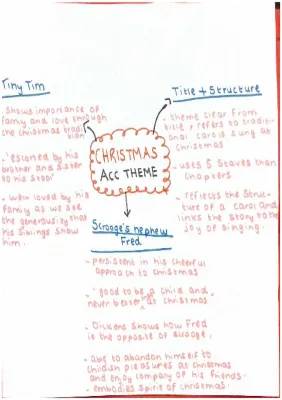 Tiny Tim
- shows importance of
family and love through
the christmas tradi
tion
- 'escorted by his
brother and sister
to his stool'
- well loved by his
family as we see
the generosity that
his siblings show
him.
CHRISTMAS
ACC THEME
Title + Structure
- theme clear from
title, refers to tradit-
ional carols sung at
christmas
- uses 5 staves than
chapters
- reflects the struc-
ture of a carol and
links the story to the
joy of singing.
Scrooge's nephew
Fred
- persistent in his cheerful
approach to christmas
- 'good to be a child and
never better than at christmas'
- Dickens shows how Fred
is the opposite of scrooge.
- able to abandon himself to
childish pleasures at christmas
and enjoy company of his friends.
- embodies spirit of christmas.